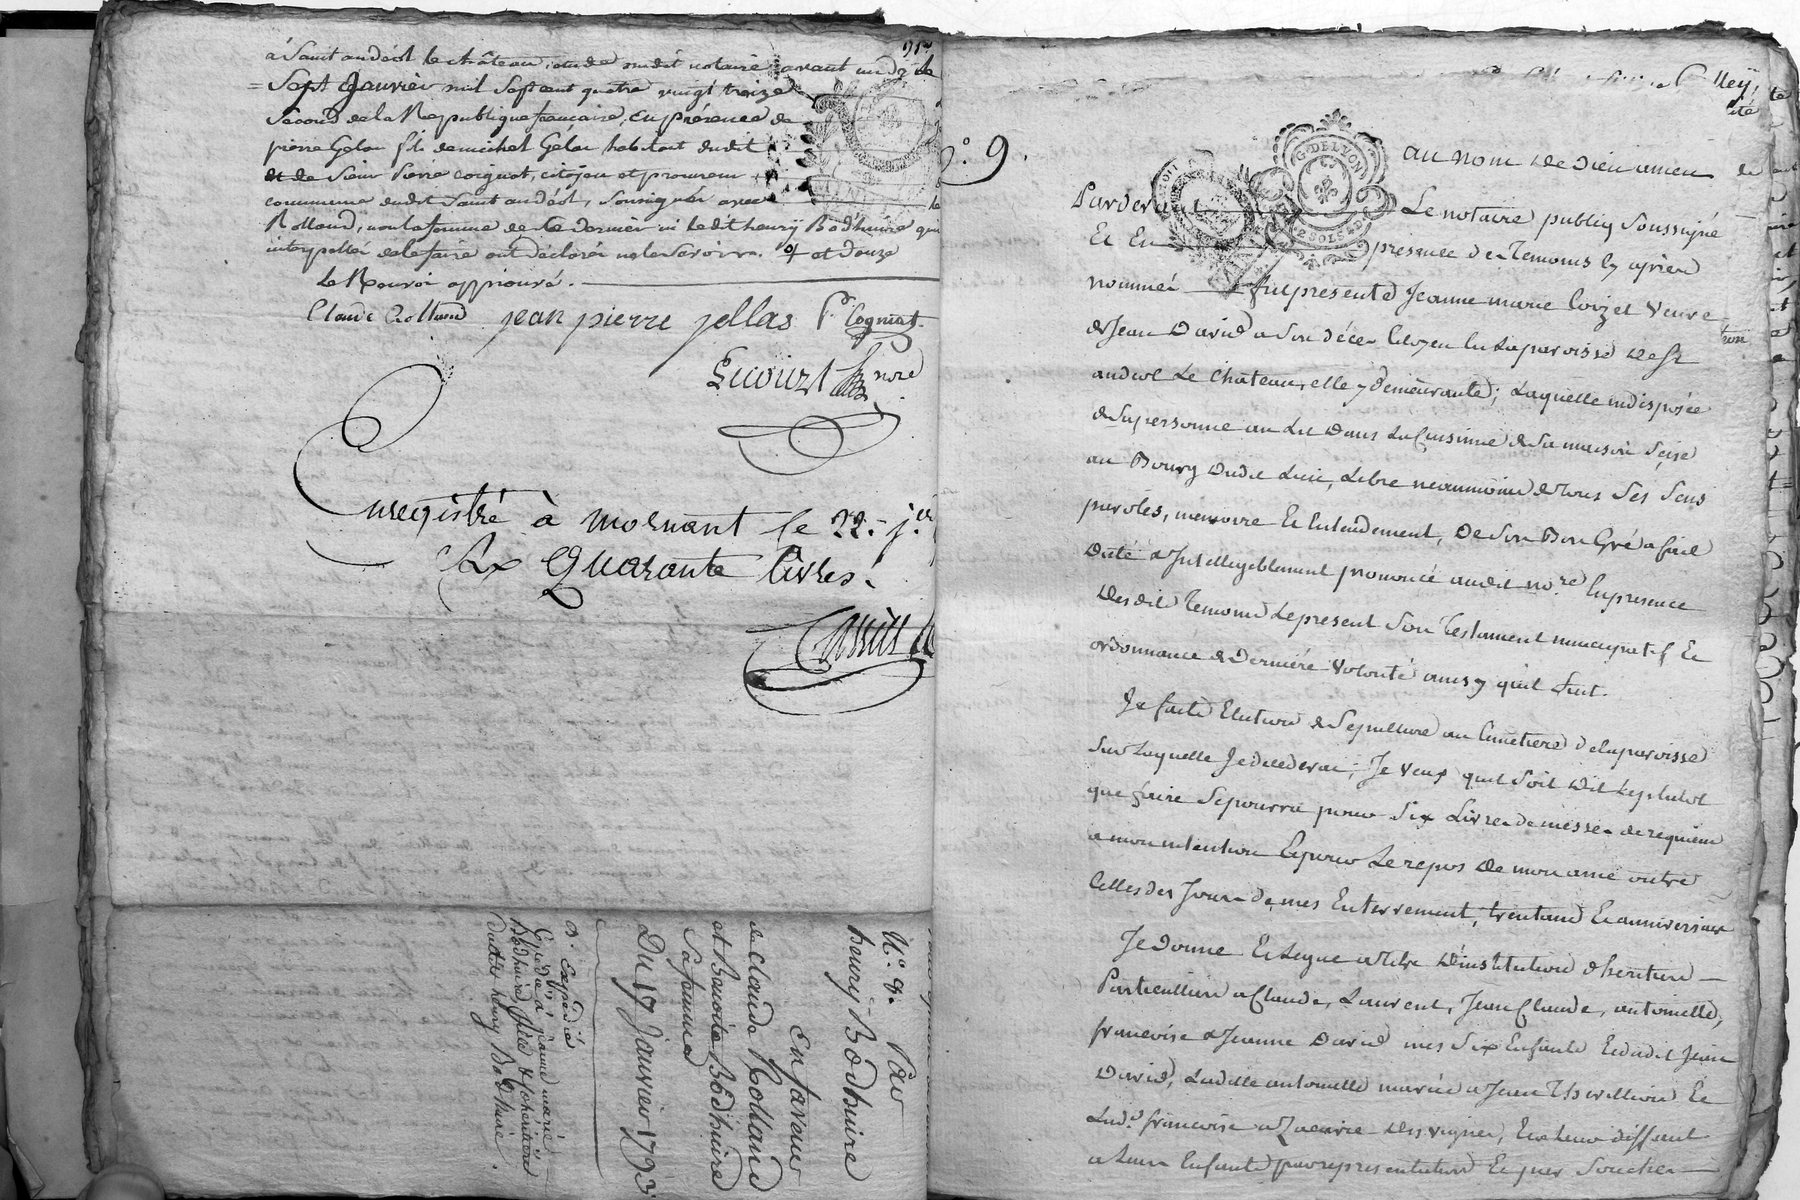 à Saint andéol le château, étude dudit notaire avant midy le
= Sept Janvier mil Sept cent quatre vingt treize
Second de la Republique francaise, en présence de
pierre Gelas fils de michel Gélas habitant dudit
et de Sieur Pierre coignat, citoyen et procureur
commune dudit Saint andéol, Soussignés avec le
Rolland, non la femme de ce dernier ni ledit henry Bodhuire
interpellés de le faire ont déclarés ne le Savoir. et douze
Le Renvoi approuvé.
Claude Rolland jean pierre jellas P. Cognat
nore
Enregistré à mornant le 22. j.er
quarante livres.
N.° 8. Par
henry Bodhuire
En faveur
de claude Rolland
et Benoite Bodhuire
Sa femme
Du 17 Janvier 1793
Expédié
Expédié à jeanne marie
Bodhuire, fille & héritière
dudit henry Bodhuire.
N.° 9.
au nom de Dieu amen
G. DE LYON
2 SOLS
Pardevant Le notaire public Soussigné
Et En presence des Temoins cy apres
nommés fut presente Jeanne marie Loizet veuve
de Jean David a Son décès Citoyen en la paroisse de St
andeol Le Château, elle y demeurante; Laquelle indisposée
de Sa personne au Lit dans La Cuisine de Sa maison Sise
au Bourg dudit Lieu, Libre neanmoins de tous Ses Sens
paroles, memoire Et Entendement, de Son Bon Gré a fait
dicté & Intelligiblement prononcé audit no.re En presence
desdits Temoins Le present Son Testament nuncupatif Et
ordonnance de Derniére volonté ainsy qu'il Suit.
Je fait Election de Sepulture au Cimetiere de la paroisse
Sur Laquelle Je decederai; Je veux qu'il Soit dit Le plutot
que faire Se pourra pour Six Livres de messes de requiem
a mon intention Et pour Le repos de mon ame outre
Celles des Jours de mes Enterrement, trentand Et anniversaire
Je donne Et Legue a titre d'institution d'heritiers
Particulliers a Claude, Laurent, Jean Claude, antoinette,
francoise & Jeanne David mes Six Enfants Et dudit Jean
David, Ladite antoinette mariée a Jean Et
Lad.e francoise a Zacarie des vignes, Et a Leur deffaut
a Leurs Enfants par representation Et par Souches